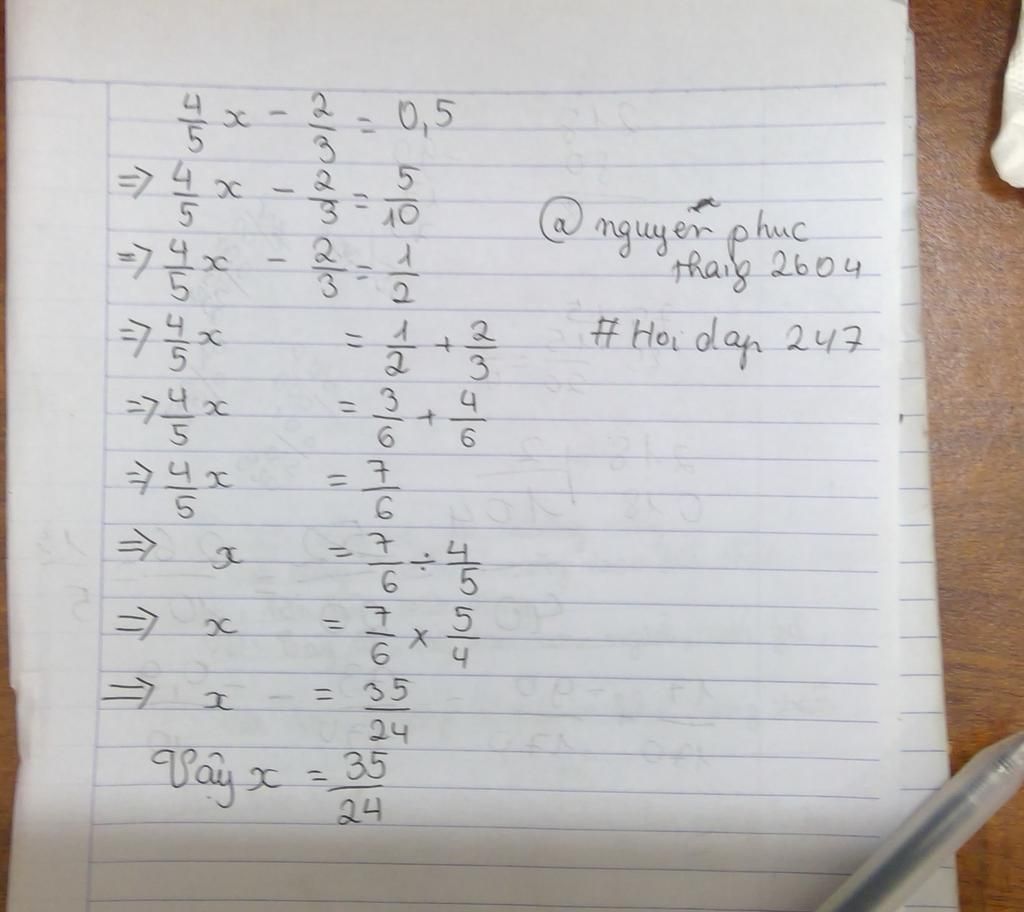 4/5 x - 2/3 = 0,5
=> 4/5 x - 2/3 = 5/10
=> 4/5 x - 2/3 = 1/2
=> 4/5 x = 1/2 + 2/3
=> 4/5 x = 3/6 + 4/6
=> 4/5 x = 7/6
=> x = 7/6 ÷ 4/5
=> x = 7/6 × 5/4
=> x = 35/24
Vậy x = 35/24
@ nguyễn phuc
thaig 2604
# Hoi dap 247